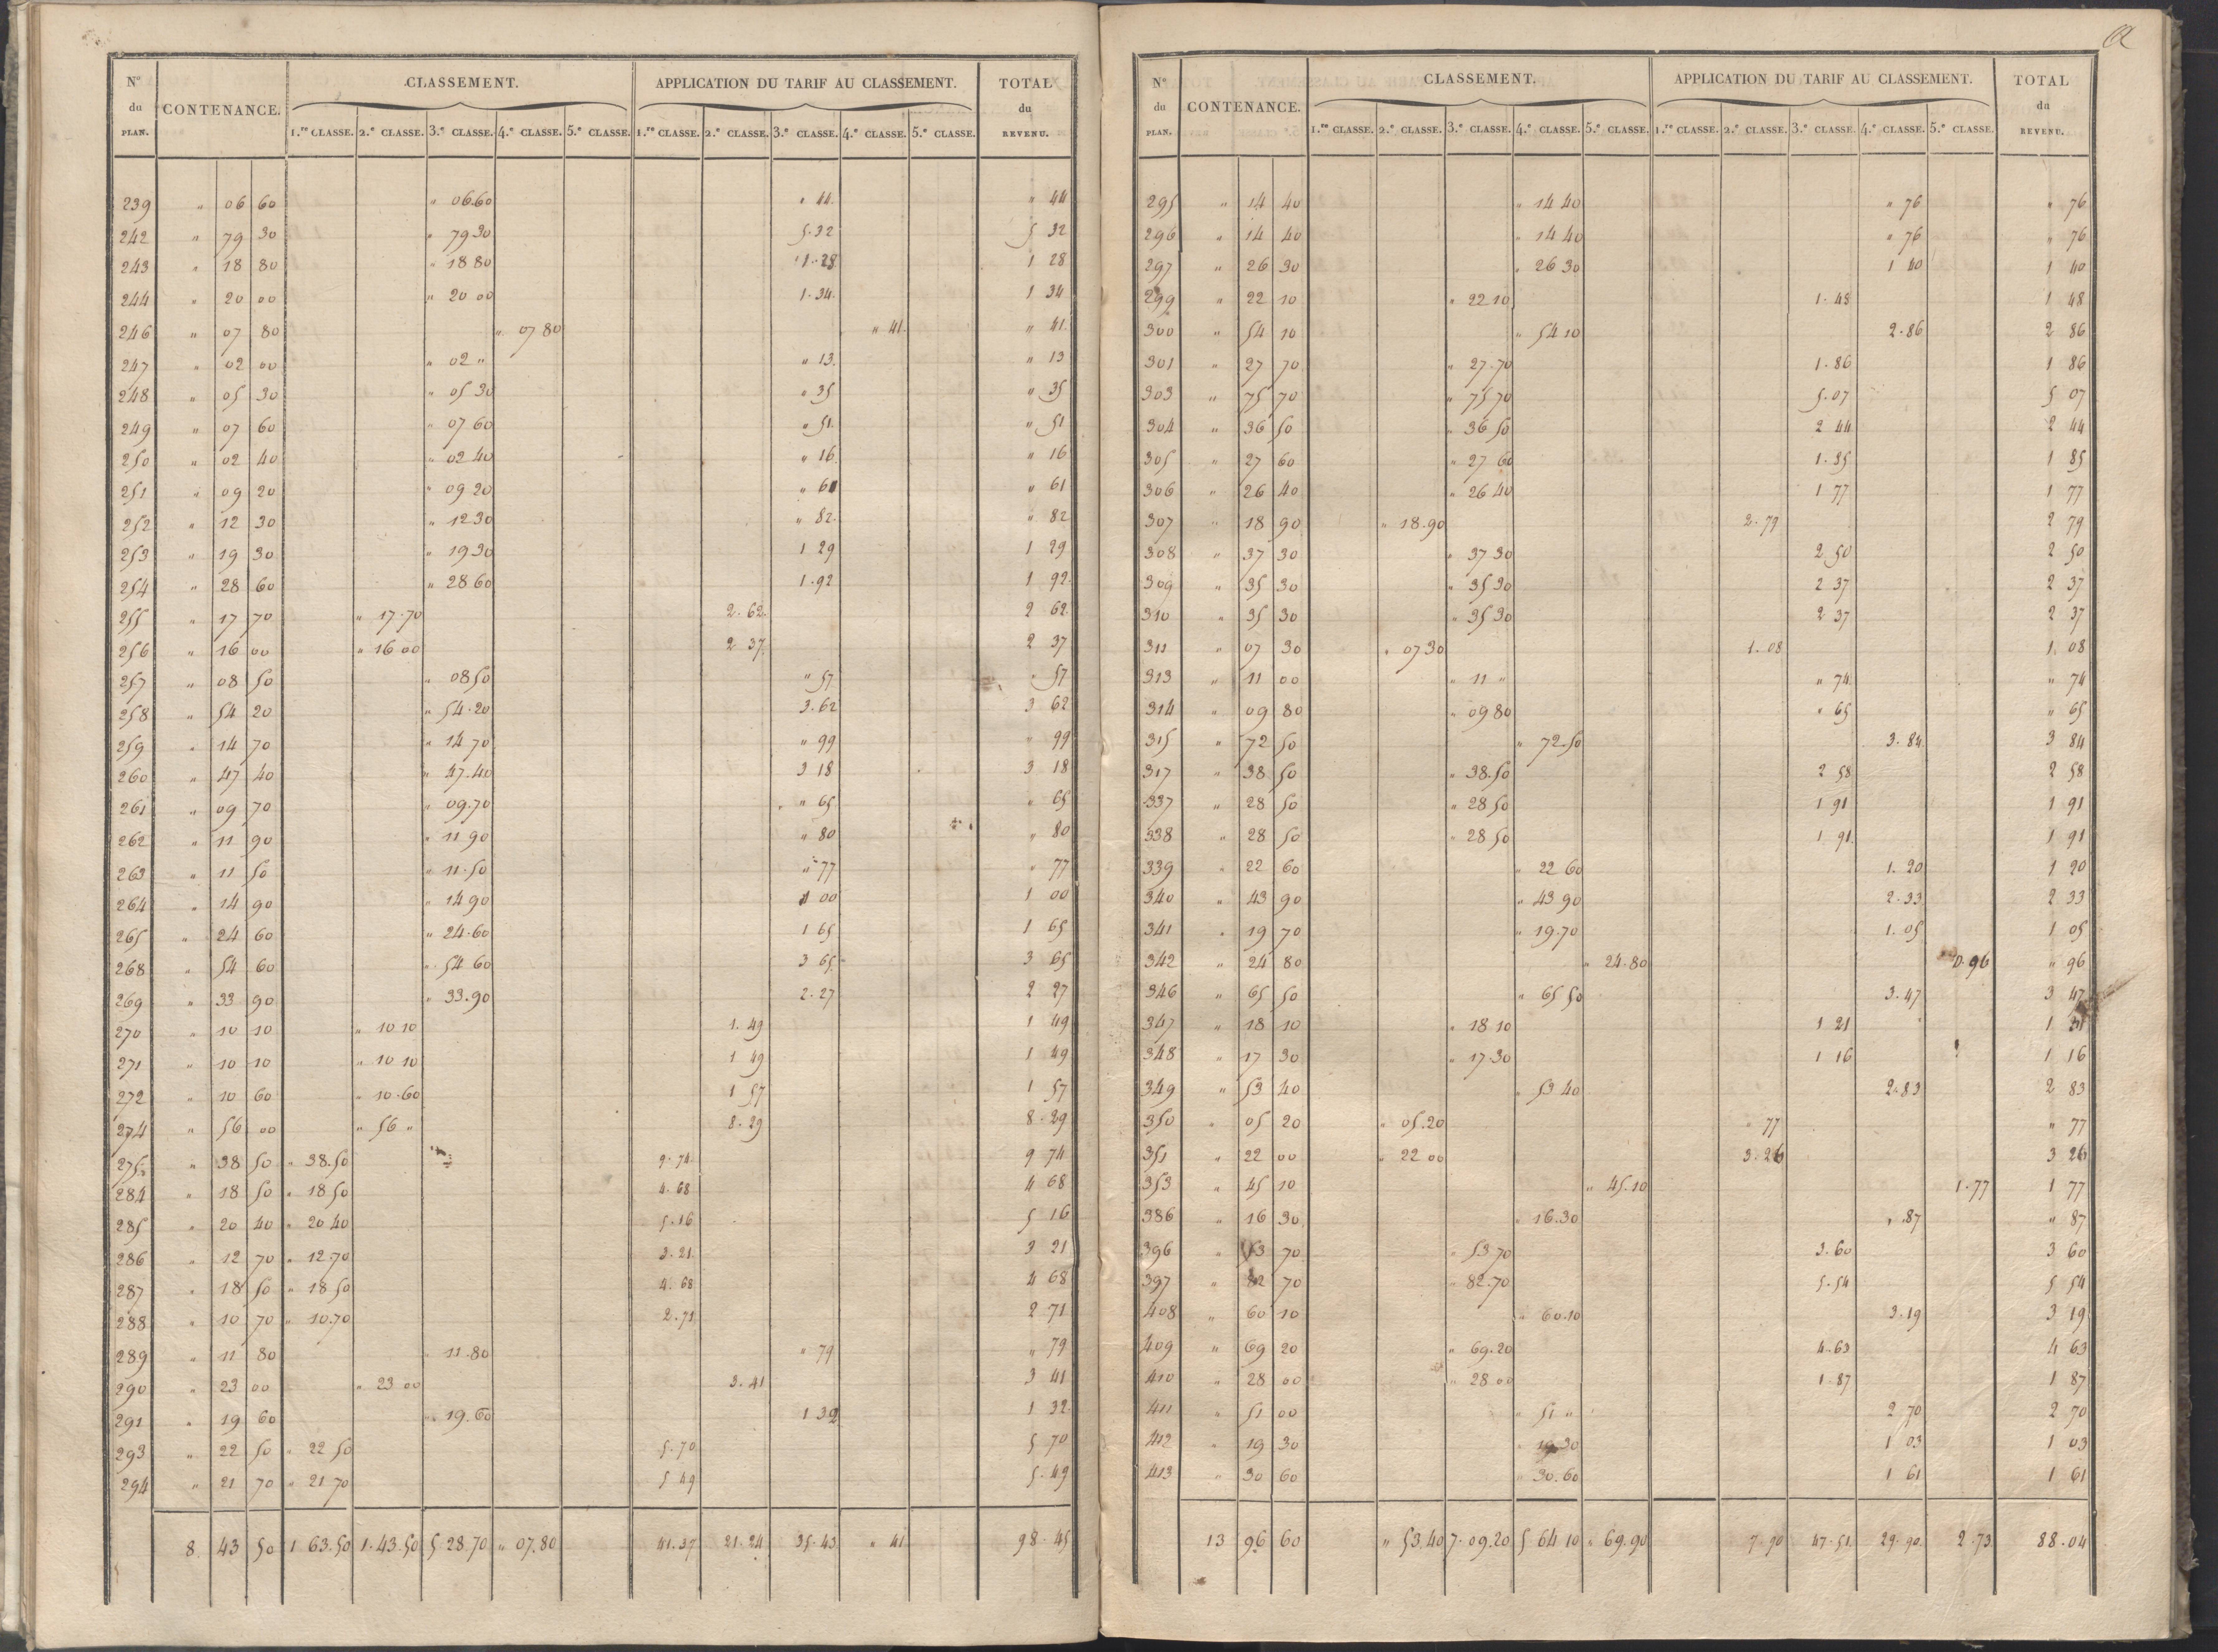 N.º du PLAN. CONTENANCE. CLASSEMENT. APPLICATION DU TARIF AU CLASSEMENT. TOTAL du REVENU.
1.re CLASSE. 2.e CLASSE. 3.e CLASSE. 4.e CLASSE. 5.e CLASSE. 1.re CLASSE. 2.e CLASSE. 3.e CLASSE. 4.e CLASSE. 5.e CLASSE.
239 " 06 60 " 06.60 " 44. " 44
242 " 79 30 " 79 30 5.32 5 32
243 " 18 80 " 18 80 1.28 1 28
244 " 20 00 " 20 00 1.34. 1 34
246 " 07 80 " 07 80 " 41. " 41.
247 " 02 00 " 02 " " 13. " 13
248 " 05 30 " 05 30 " 35 " 35
249 " 07 60 " 07 60 " 51. " 51
250 " 02 40 " 02 40 " 16. " 16
251 " 09 20 " 09 20 " 61 " 61
252 " 12 30 " 12 30 " 82. " 82
253 " 19 30 " 19 30 1 29 1 29
254 " 28 60 " 28 60 1.92 1 92.
255 " 17 70 " 17.70 2.62. 2 62.
256 " 16 00 " 16 00 2 37. 2 37
257 " 08 50 " 08 50 " 57 " 57
258 " 54 20 " 54.20 3.62 3 62
259 " 14 70 " 14 70 " 99 " 99
260 " 47 40 " 47.40 3 18 3 18
261 " 09 70 " 09.70 " 65 " 65
262 " 11 90 " 11 90 " 80 " 80
263 " 11 50 " 11.50 " 77 " 77
264 " 14 90 " 14 90 1 00 1 00
265 " 24 60 " 24.60 1 65 1 65
268 " 54 60 " 54 60 3 65 3 65
269 " 33 90 " 33.90 2.27 2 27
270 " 10 10 " 10 10 1.49 1 49
271 " 10 10 " 10 10 1 49 1 49
272 " 10 60 " 10.60 1 57 1 57
274 " 56 00 " 56 " 8.29 8.29
275 " 38 50 " 38.50 9.74. 9 74
284 " 18 50 " 18 50 4.68 4 68
285 " 20 40 " 20 40 5.16 5 16
286 " 12 70 " 12.70 3.21 3 21
287 " 18 50 " 18 50 4.68 4 68
288 " 10 70 " 10.70 2.71 2 71
289 " 11 80 " 11.80 " 79 " 79
290 " 23 00 " 23 00 3.41 3 41
291 " 19 60 " 19.60 1 32 1 32
293 " 22 50 " 22 50 5.70 5 70
294 " 21 70 " 21 70 5 49 5.49
8. 43 50 1 63.50 1.43.50 5.28.70 " 07.80 41.37 21.24 35.43 " 41 98.45
N.º du PLAN. CONTENANCE. CLASSEMENT. APPLICATION DU TARIF AU CLASSEMENT. TOTAL du REVENU.
1.re CLASSE. 2.e CLASSE. 3.e CLASSE. 4.e CLASSE. 5.e CLASSE. 1.re CLASSE. 2.e CLASSE. 3.e CLASSE. 4.e CLASSE. 5.e CLASSE.
295 " 14 40 " 14 40 " 76 " 76
296 " 14 40 " 14 40 " 76 " 76
297 " 26 30 " 26 30 1 40 1 40
299 " 22 10 " 22 10 1.48 1 48
300 " 54 10 " 54 10 2.86 2 86
301 " 27 70 " 27.70 1.86 1 86
303 " 75 70 " 75 70 5.07 5 07
304 " 36 50 " 36 50 2 44 2 44
305 " 27 60 " 27 60 1.85 1 85
306 " 26 40 " 26 40 1 77 1 77
307 " 18 90 " 18.90 2.79 2 79
308 " 37 30 " 37 30 2 50 2 50
309 " 35 30 " 35 30 2 37 2 37
310 " 35 30 " 35 30 2 37 2 37
311 " 07 30 " 07 30 1.08 1. 08
313 " 11 00 " 11 " " 74 " 74
314 " 09 80 " 09 80 " 65 " 65
315 " 72 50 " 72.50 3.84 3 84
317 " 38 50 " 38.50 2 58 2 58
337 " 28 50 " 28 50 1 91 1 91
338 " 28 50 " 28 50 1 91 1 91
339 " 22 60 " 22 60 1.20 1 20
340 " 43 90 " 43 90 2.33 2 33
341 " 19 70 " 19.70 1.05 1 05
342 " 24 80 " 24.80 0.96 " 96
346 " 65 50 " 65 50 3.47 3 47
347 " 18 10 " 18 10 1 21 1 21
348 " 17 30 " 17.30 1 16 1 16
349 " 53 40 " 53 40 2.83 2 83
350 " 05 20 " 05.20 " 77 " 77
351 " 22 00 " 22 00 3.26 3 26
353 " 45 10 " 45.10 1.77 1 77
386 " 16 30 " 16.30 " .87 " 87
396 " 53 70 " 53 70 3.60 3 60
397 " 82 70 " 82.70 5.54 5 54
408 " 60 10 " 60.10 3.19 3 19
409 " 69 20 " 69.20 4.63 4 63
410 " 28 00 " 28 00 1.87 1 87
411 " 51 00 " 51 " 2 70 2 70
412 " 19 30 " 19 30 1 03 1 03
413 " 30 60 " 30.60 1 61 1 61
13 96 60 " 53.40 7.09.20 5 64 10 " 69.90 7.90 47.51 29.90. 2.73 88.04